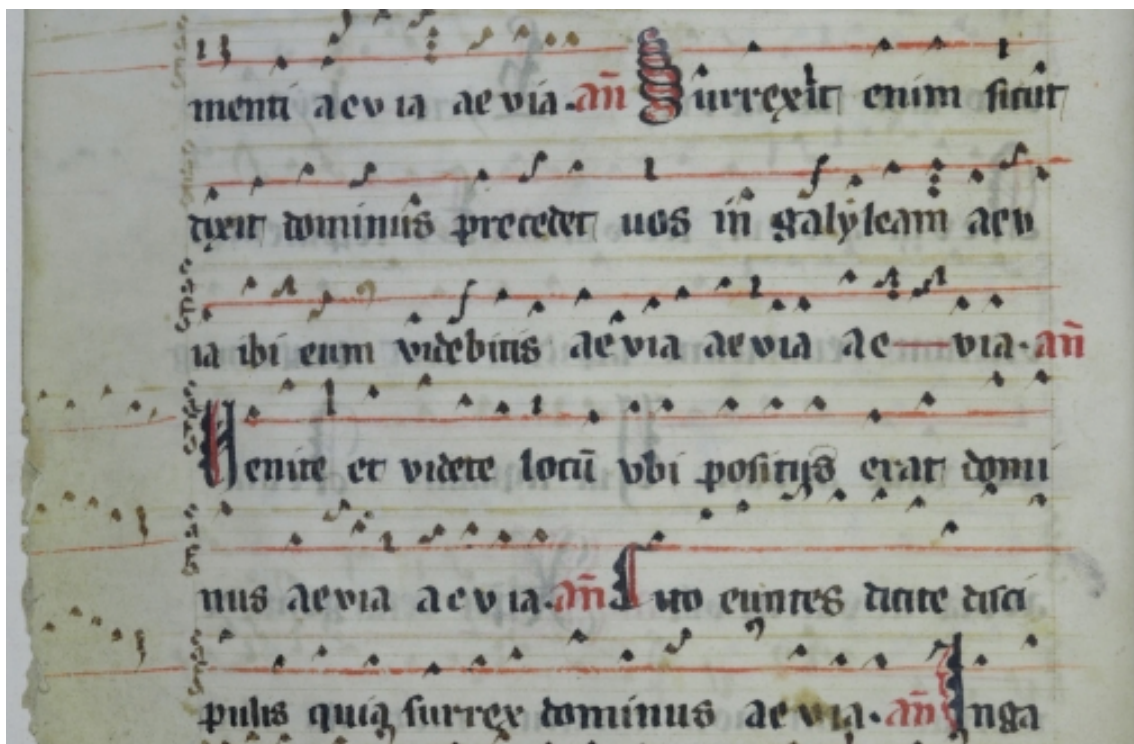 menti aevia aevia. an̄ Surrexit enim sicut
dixit dominus precedet uos in galyleam aev
ia ibi eum videbitis aevia aevia ae—via. an̄
Uenite et videte locū vbi positus erat domi
nus aevia aevia. an̄ Cito euntes dicite disci
pulis quia surrex dominus aevia. an̄ Anga